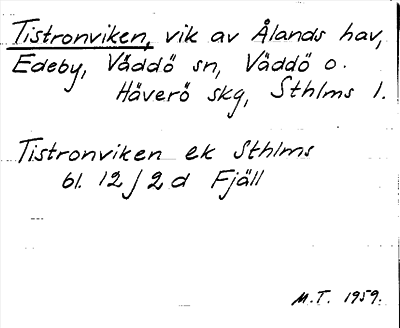 Tistronviken, vik av Ålands hav,
Edeby, Väddö sn, Väddö o.
Häverö skg, Sthlms l.
Tistronviken ek Sthlms
bl. 12 J 2 d Fjäll
M.T. 1959.